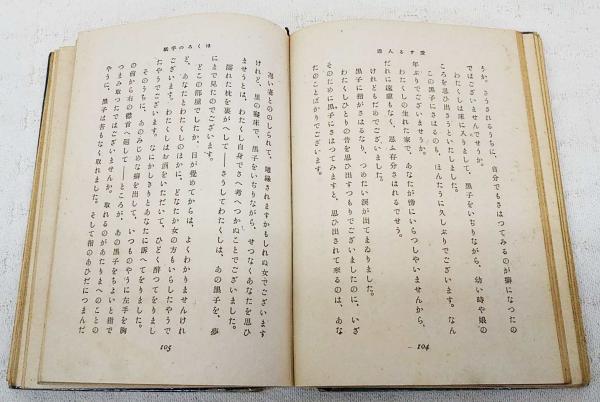 愛する人達
うか。さうされるうちに、自分でもさはつてみるのが癖になつたの
ではございませんでせうか。
わたくしは床に入りまして、黒子をいぢりながら、幼い時や娘の
ころを思ひ出さうといたしました。
この黒子にさはるのも、ほんたうに久しぶりでございます。なん
年ぶりでございませうか。
わたくしの生れた家で、あなたが傍にいらつしやいませんから、
だれに遠慮もなく、思ふ存分さはれるでせう。
けれどもだめでございました。
黒子に指がさはるなり、つめたい涙が出てまゐりました。
わたくしひとりの昔を思ひ出すつもりでございましたのに、いざ
そのために黒子にさはつてみますと、思ひ出されて来るのは、あな
たのことばかりでございます。
104
ほくろの手紙
悪い妻とののしられて、離縁されますかもしれぬ女でございます
けれど、里の寝床で、黒子をいぢりながら、せつなくあなたを思ひ
ませうとは、わたくし自身でさへ考へつかぬことでございました。
濡れた枕を裏がへして――さうしてわたくしは、あの黒子を、夢
にまで見たのでございます。
どこの部屋でしたか、目が覚めてからは、よくわかりませんけれ
ど、あなたとわたくしのほかに、どなたか女の方もいらしたやうで
ございます。わたくしはお酒をいただいて、ひどく酔つてをりまし
たやうでございます。なにかしきりとあなたに訴へてをりました。
そのうちに、あのみじめな癖を出して、いつものやうに左手を胸
の前から右の襟首へ廻して――ところが、あの黒子をちよいと指で
つまみ取つたではございませんか。取れるのがあたりまへのことの
やうに、黒子は苦もなく取れました。そして指のあひだにつまんだ
105